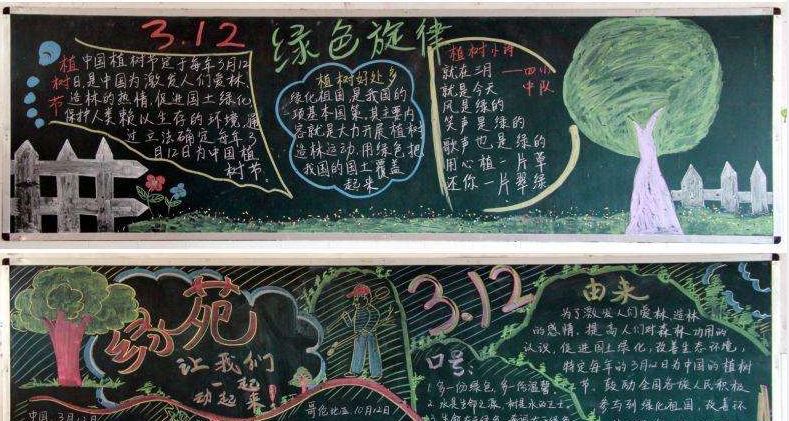 3.12 绿色旋律
植树节
中国植树节定于每年3月12
日,是中国为激发人们爱林、
造林的热情,促进国土绿化
保护人类赖以生存的环境,通
过立法确定每年3
月12日为中国植
树节。
植树好处多
绿化祖国是我国的一
项基本国策,其主要内
容就是大力开展植树
造林运动,用绿色把
我国的国土覆盖
起来
植树小诗
——四小
中队
就在三月
就是今天
风是绿的
笑声是绿的
歌声也是绿的
用心植一片草
还你一片翠绿
绿苑
让我们
一起
动起来
中国 3月12日
哥伦比亚,10月12日
3.12
口号:
1.多一份绿色,多一份温馨
2.水是生命之源,树是水的卫士。
由来
为了激发人们爱林、造林
的感情,提高人们对森林功用的
认识,促进国土绿化,改善生态环境,
特定每年的3月12日为中国的植树
节、鼓励全国各族人民积极
参与到绿化祖国,改善环